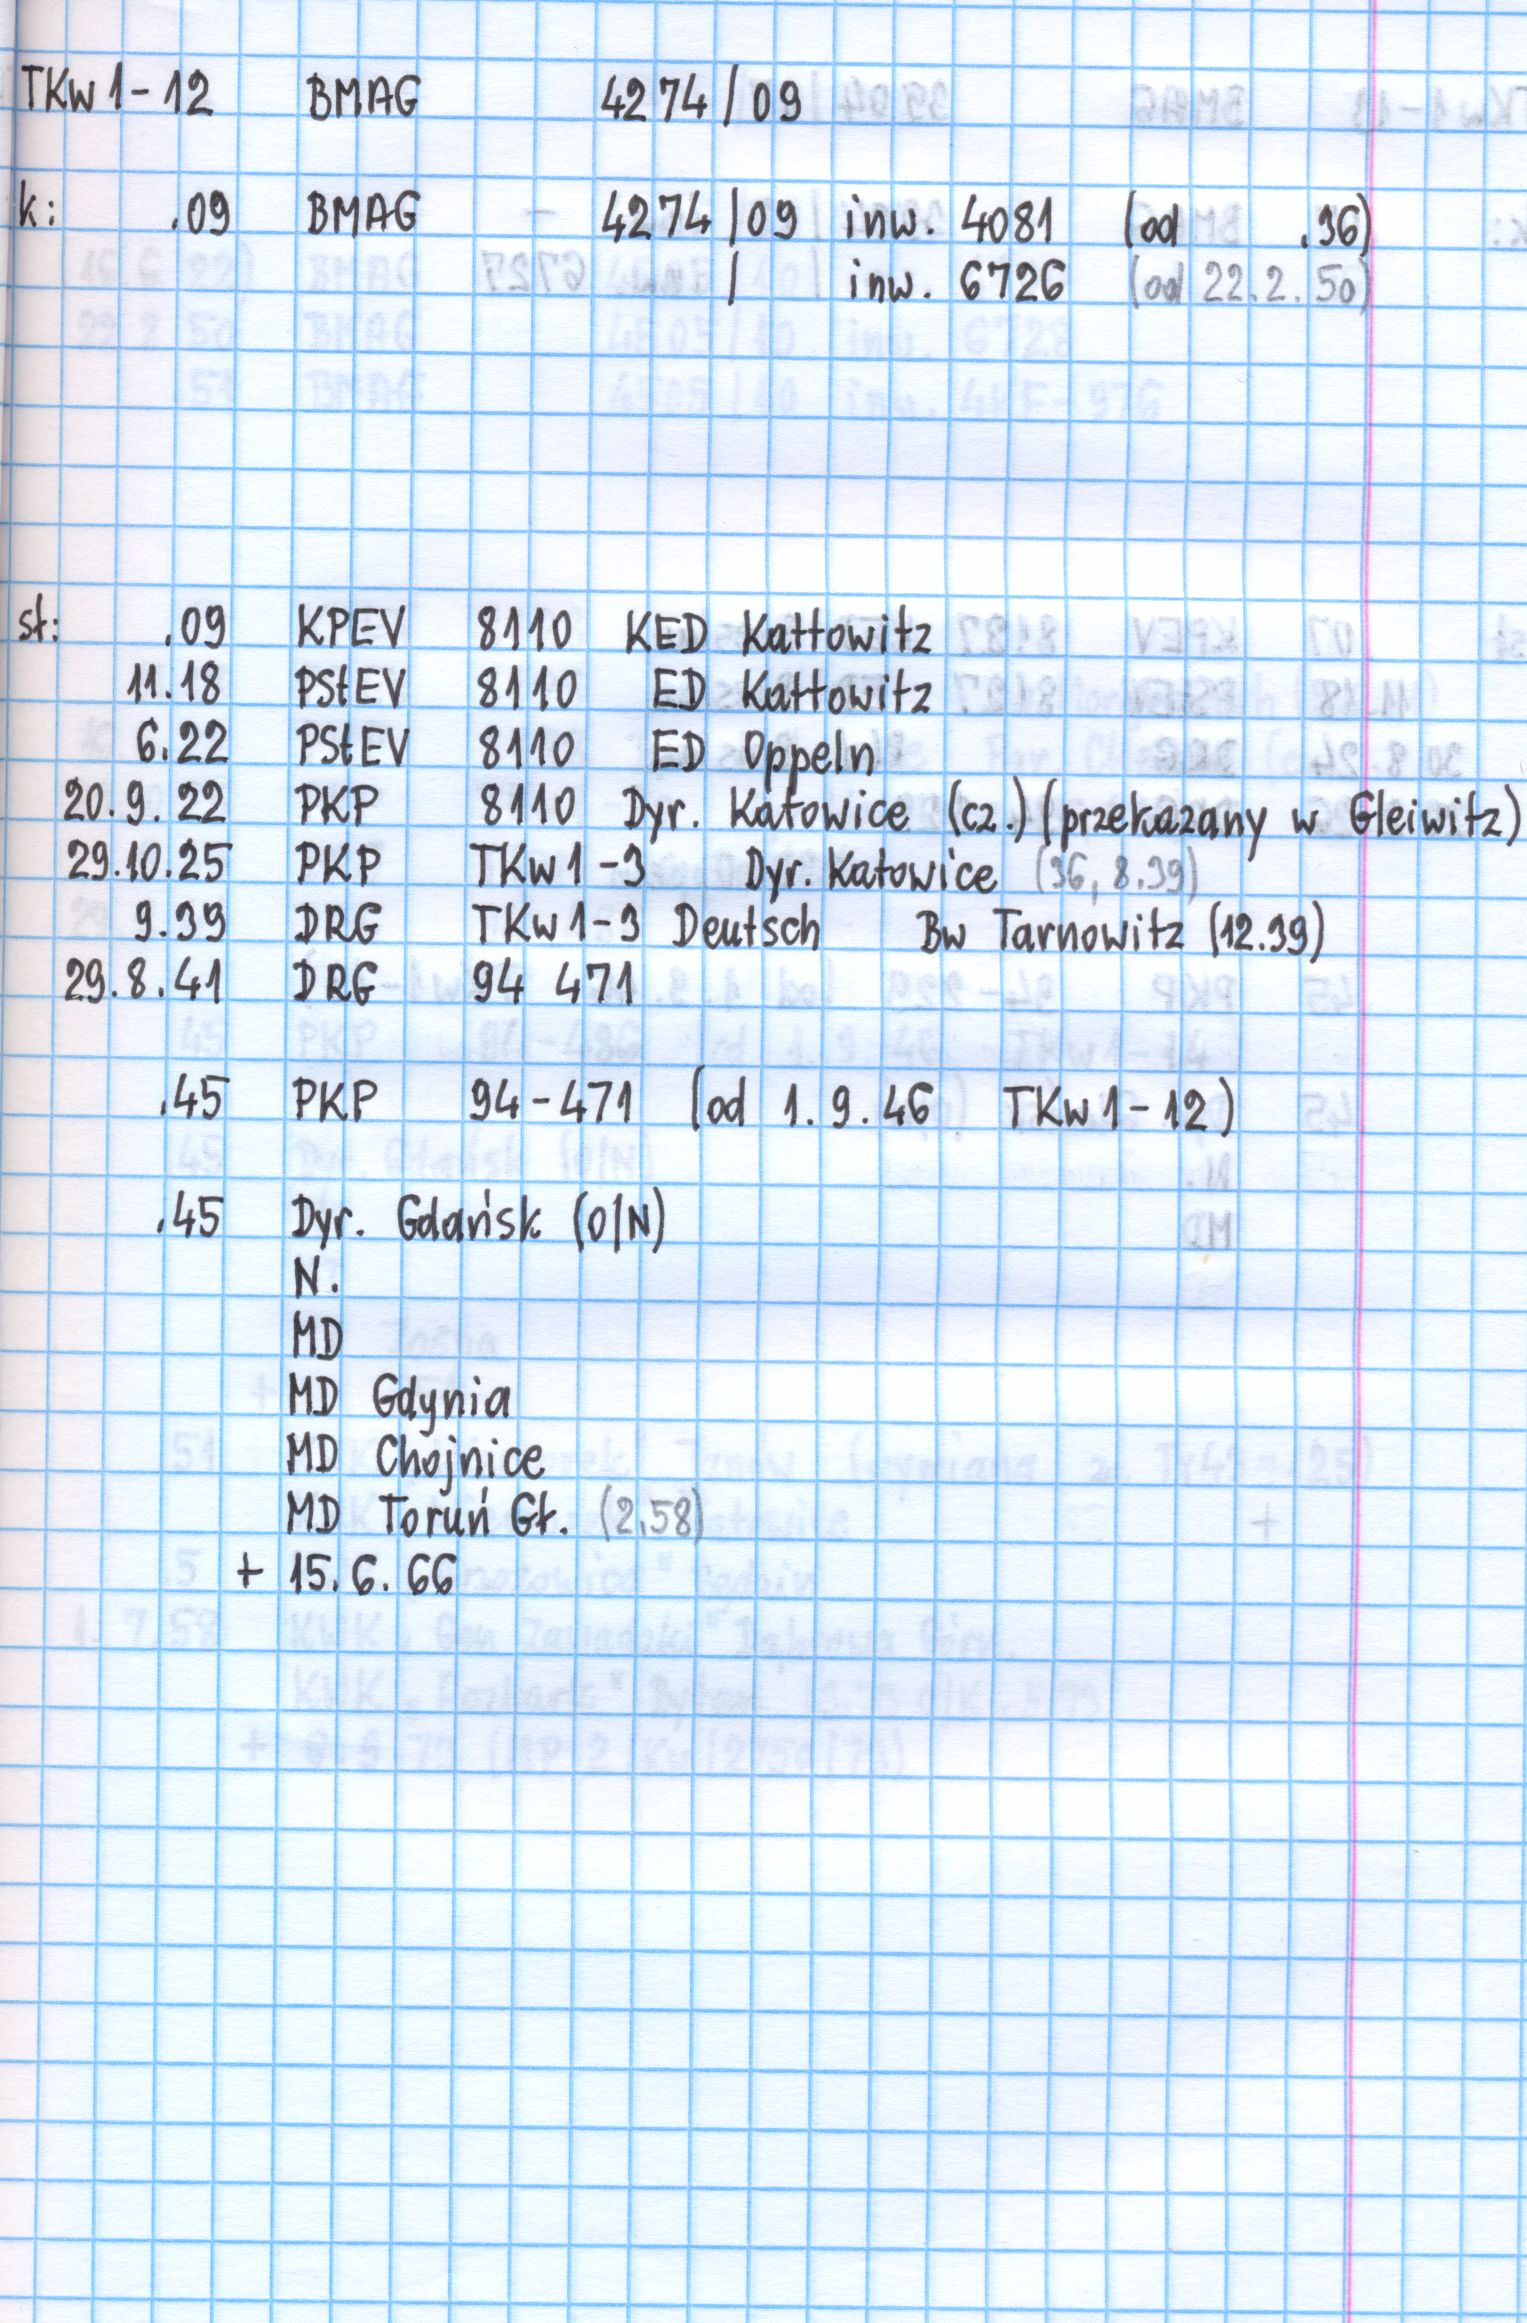 TKw 1-12 BMAG 4274/09
k: .09 BMAG 4274/09 inw. 4081 (od .36)
/ inw. 6726 (od 22.2.50)
st: .09 KPEV 8110 KED Kattowitz
11.18 PStEV 8110 ED Kattowitz
6.22 PStEV 8110 ED Oppeln
20.9.22 PKP 8110 Dyr. Katowice (cz.) (przekazany w Gleiwitz)
29.10.25 PKP TKw 1-3 Dyr. Katowice (36, 8.39)
9.39 DRG TKw 1-3 Deutsch Bw Tarnowitz (12.39)
29.8.41 DRG 94 471
.45 PKP 94-471 (od 1.9.46 TKw 1-12)
.45 Dyr. Gdańsk (O/N)
N.
MD
MD Gdynia
MD Chojnice
MD Toruń Gł. (2.58)
+ 15.6.66